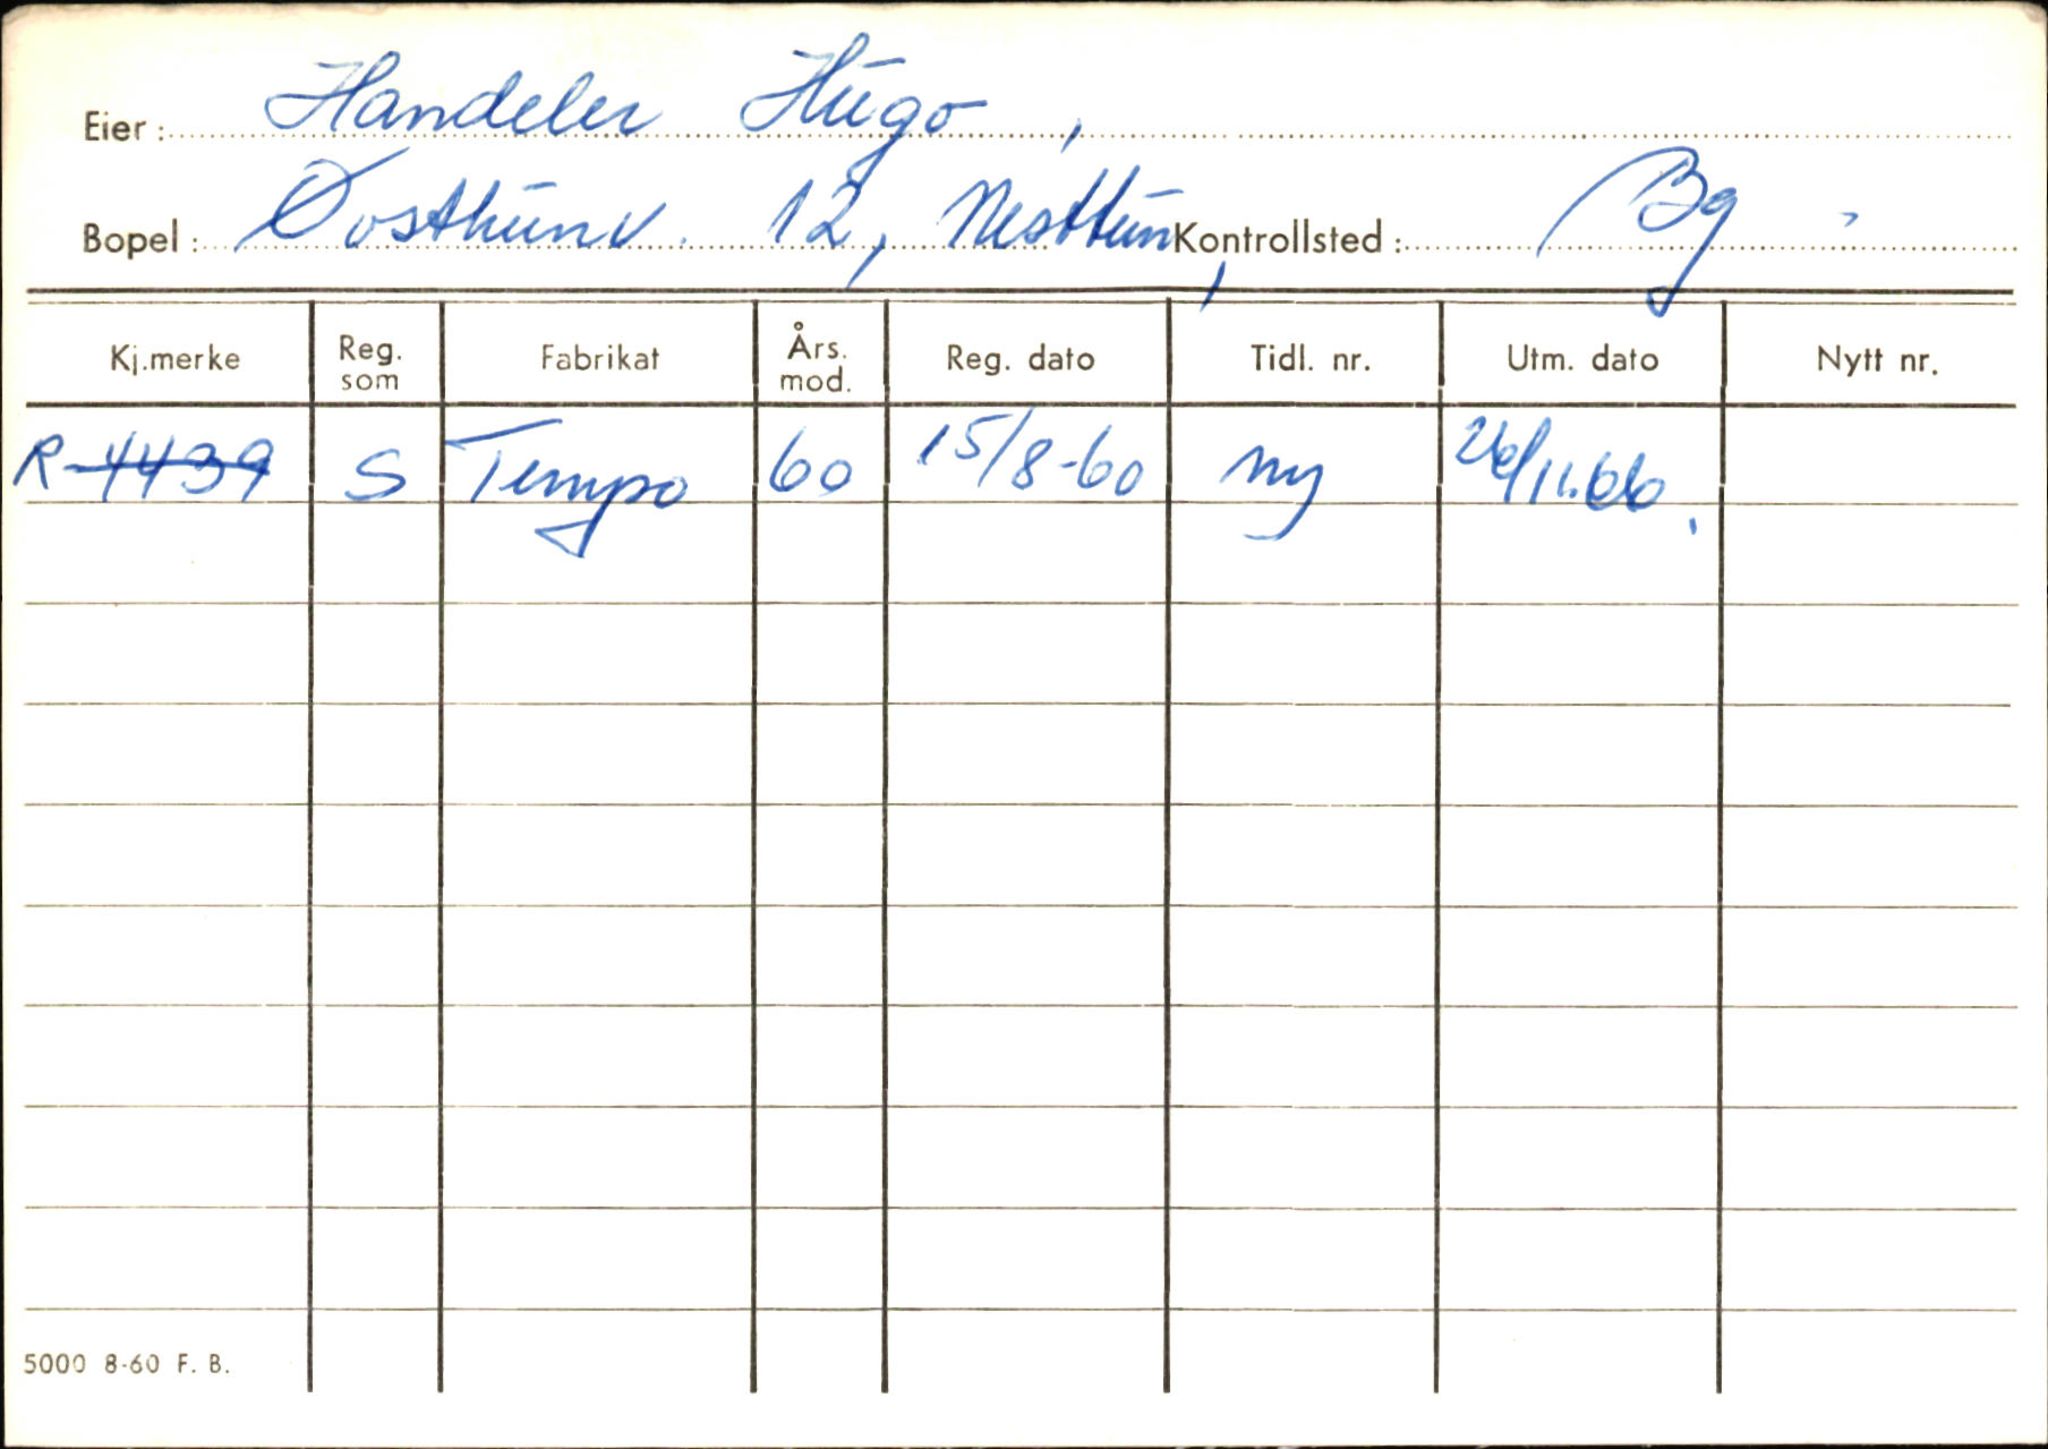 Eier: Handeler Hugo,
Bopel: Øvsttunv. 12, Nesttun, Kontrollsted: Bg.
Kj.merke Reg. som Fabrikat Års. mod. Reg. dato Tidl. nr. Utm. dato Nytt nr.
R-4439 S Tempo 60 15/8-60 ny 26/11.66.
5000 8-60 F. B.